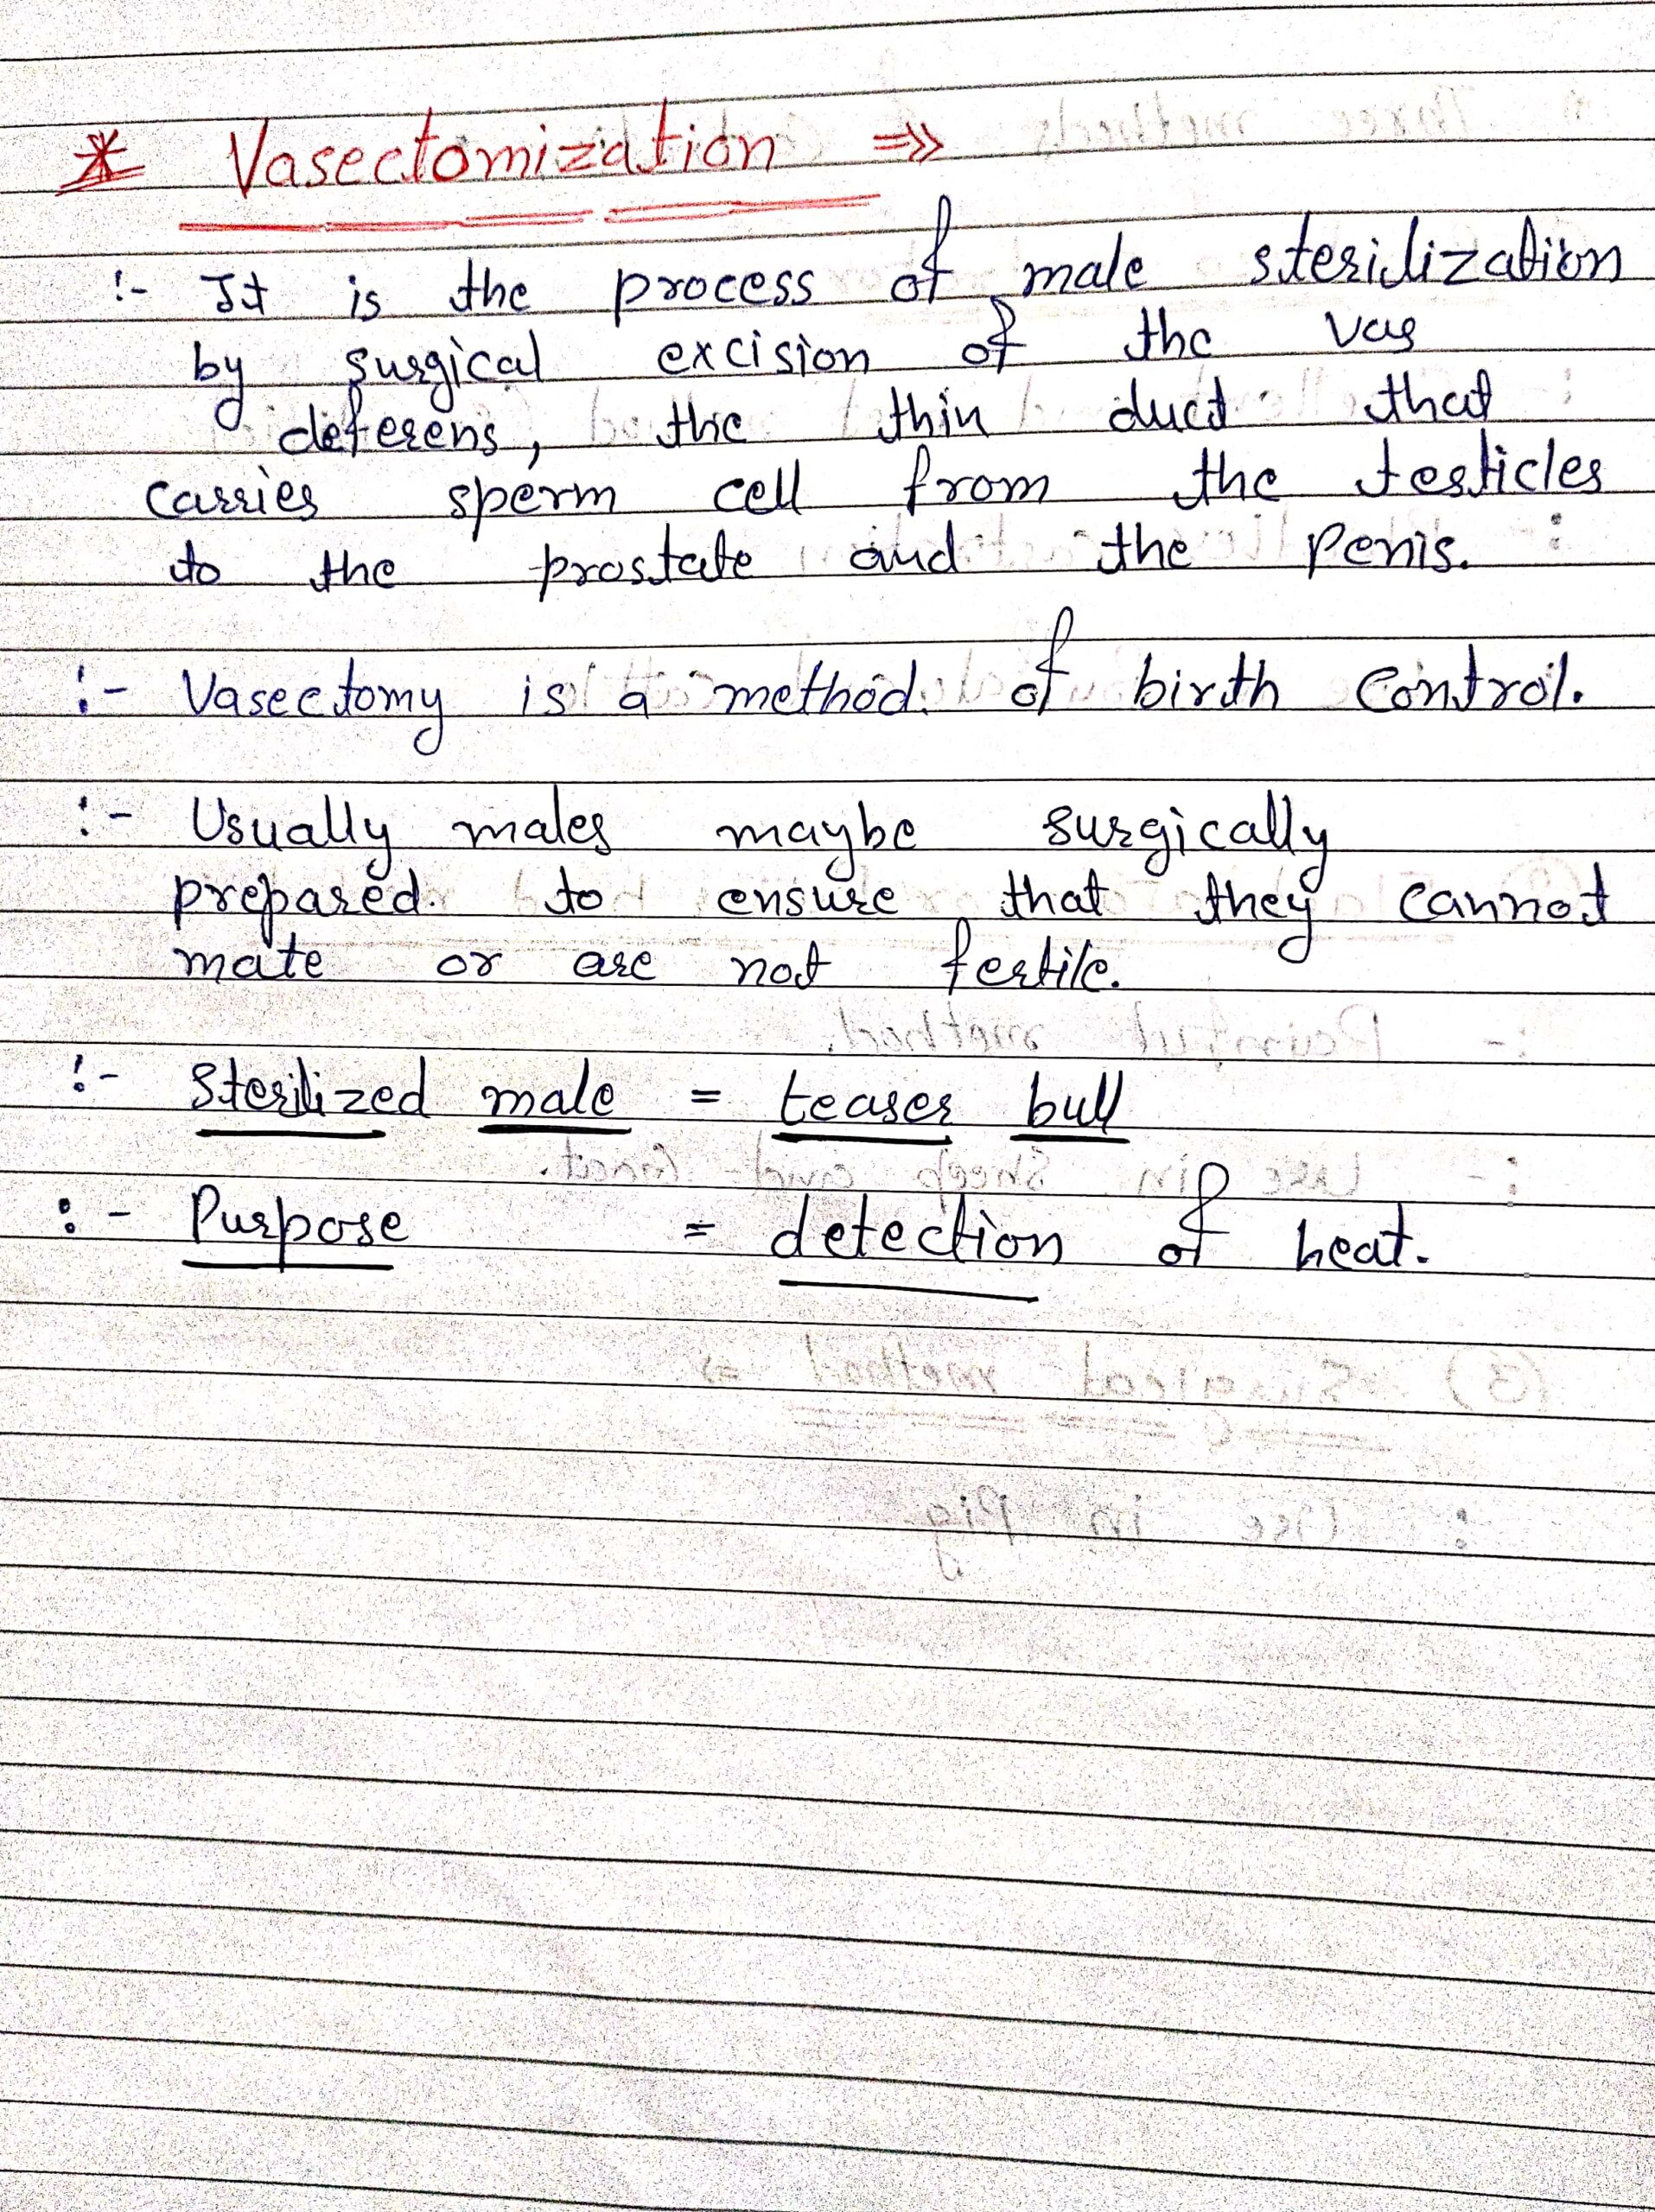 * Vasectomization ⇒>
:- It is the process of male sterilization
by surgical excision of the vas
deferens, the thin duct that
carries sperm cell from the testicles
to the prostate and the Penis.
:- Vasectomy is a method of birth control.
:- Usually males maybe surgically
prepared to ensure that they cannot
mate or are not fertile.
:- Sterilized male = teaser bull
:- Purpose = detection of heat.